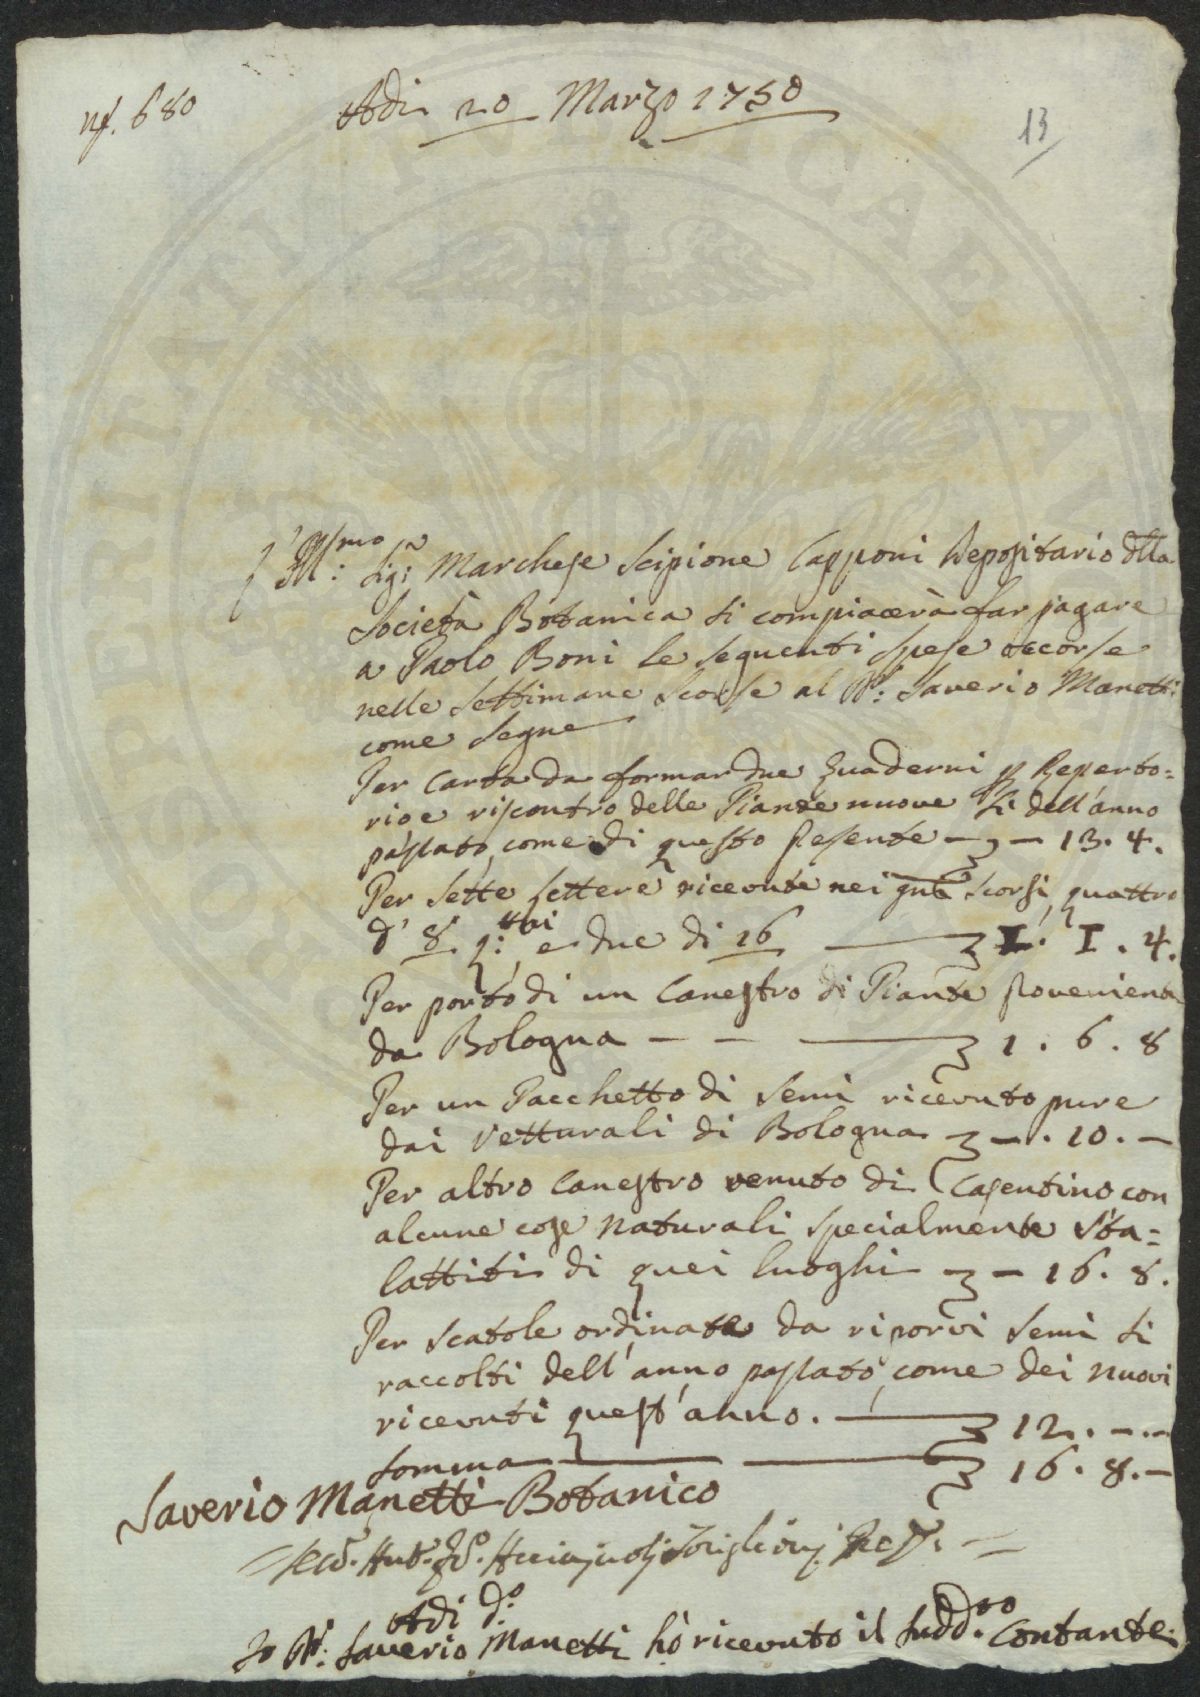 n.° 680
Adi 20 Marzo 1750
13
Ill:mo Sig:r Marchese Scipione Capponi Depositario dlla
Società Botanica si compiacerà far pagare
a Paolo Boni le seguenti spese occorse
nelle settimane scorse al Dr: Saverio Manetti
come segue
Per carta da formar due quaderni p Reperto=
rio e riscontro delle Piante nuove si dell'anno
passato, come di questo presente — — 13. 4.
Per sette lettere ricevute nei scorsi, quattro
d' 8 q:ni, e due di 16 — 1. 1. 4.
Per porto di un Canestro di Piante proveniente
da Bologna — — — 1. 6. 8
Per un Pacchetto di semi ricevuto pure
dai Vetturali di Bologna — . 10. —
Per altro Canestro venuto di Casentino con
alcune cose naturali specialmente sta=
lattiti di quei luoghi — — 16. 8.
Per scatole ordinate da riporvi semi si
raccolti dell'anno passato, come dei nuovi
ricevuti quest'anno. — 12. —. —
Somma — — 16. 8. —
Saverio Manetti Botanico
Adi d:o
Io Dr: Saverio Manetti hò ricevuto il sudd:to Contante